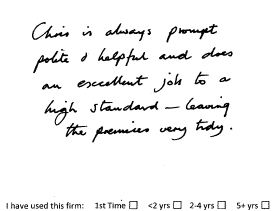 Chris is always prompt
polite & helpful and does
an excellent job to a
high standard — leaving
the premises very tidy.
I have used this firm: 1st Time ☐ <2 yrs ☐ 2-4 yrs ☐ 5+ yrs ☐